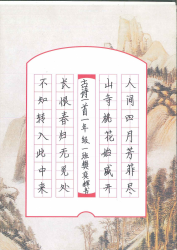 人间四月芳菲尽
山寺桃花始盛开
古诗一首一年级一班樊辉书
长恨春归无觅处
不知转入此中来